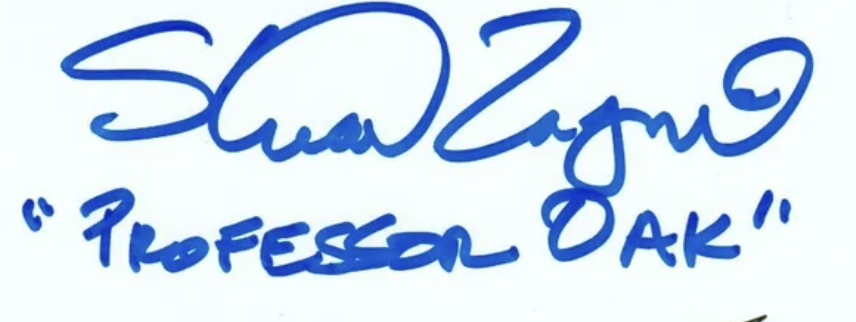 Stuart Zagnit
"PROFESSOR OAK"